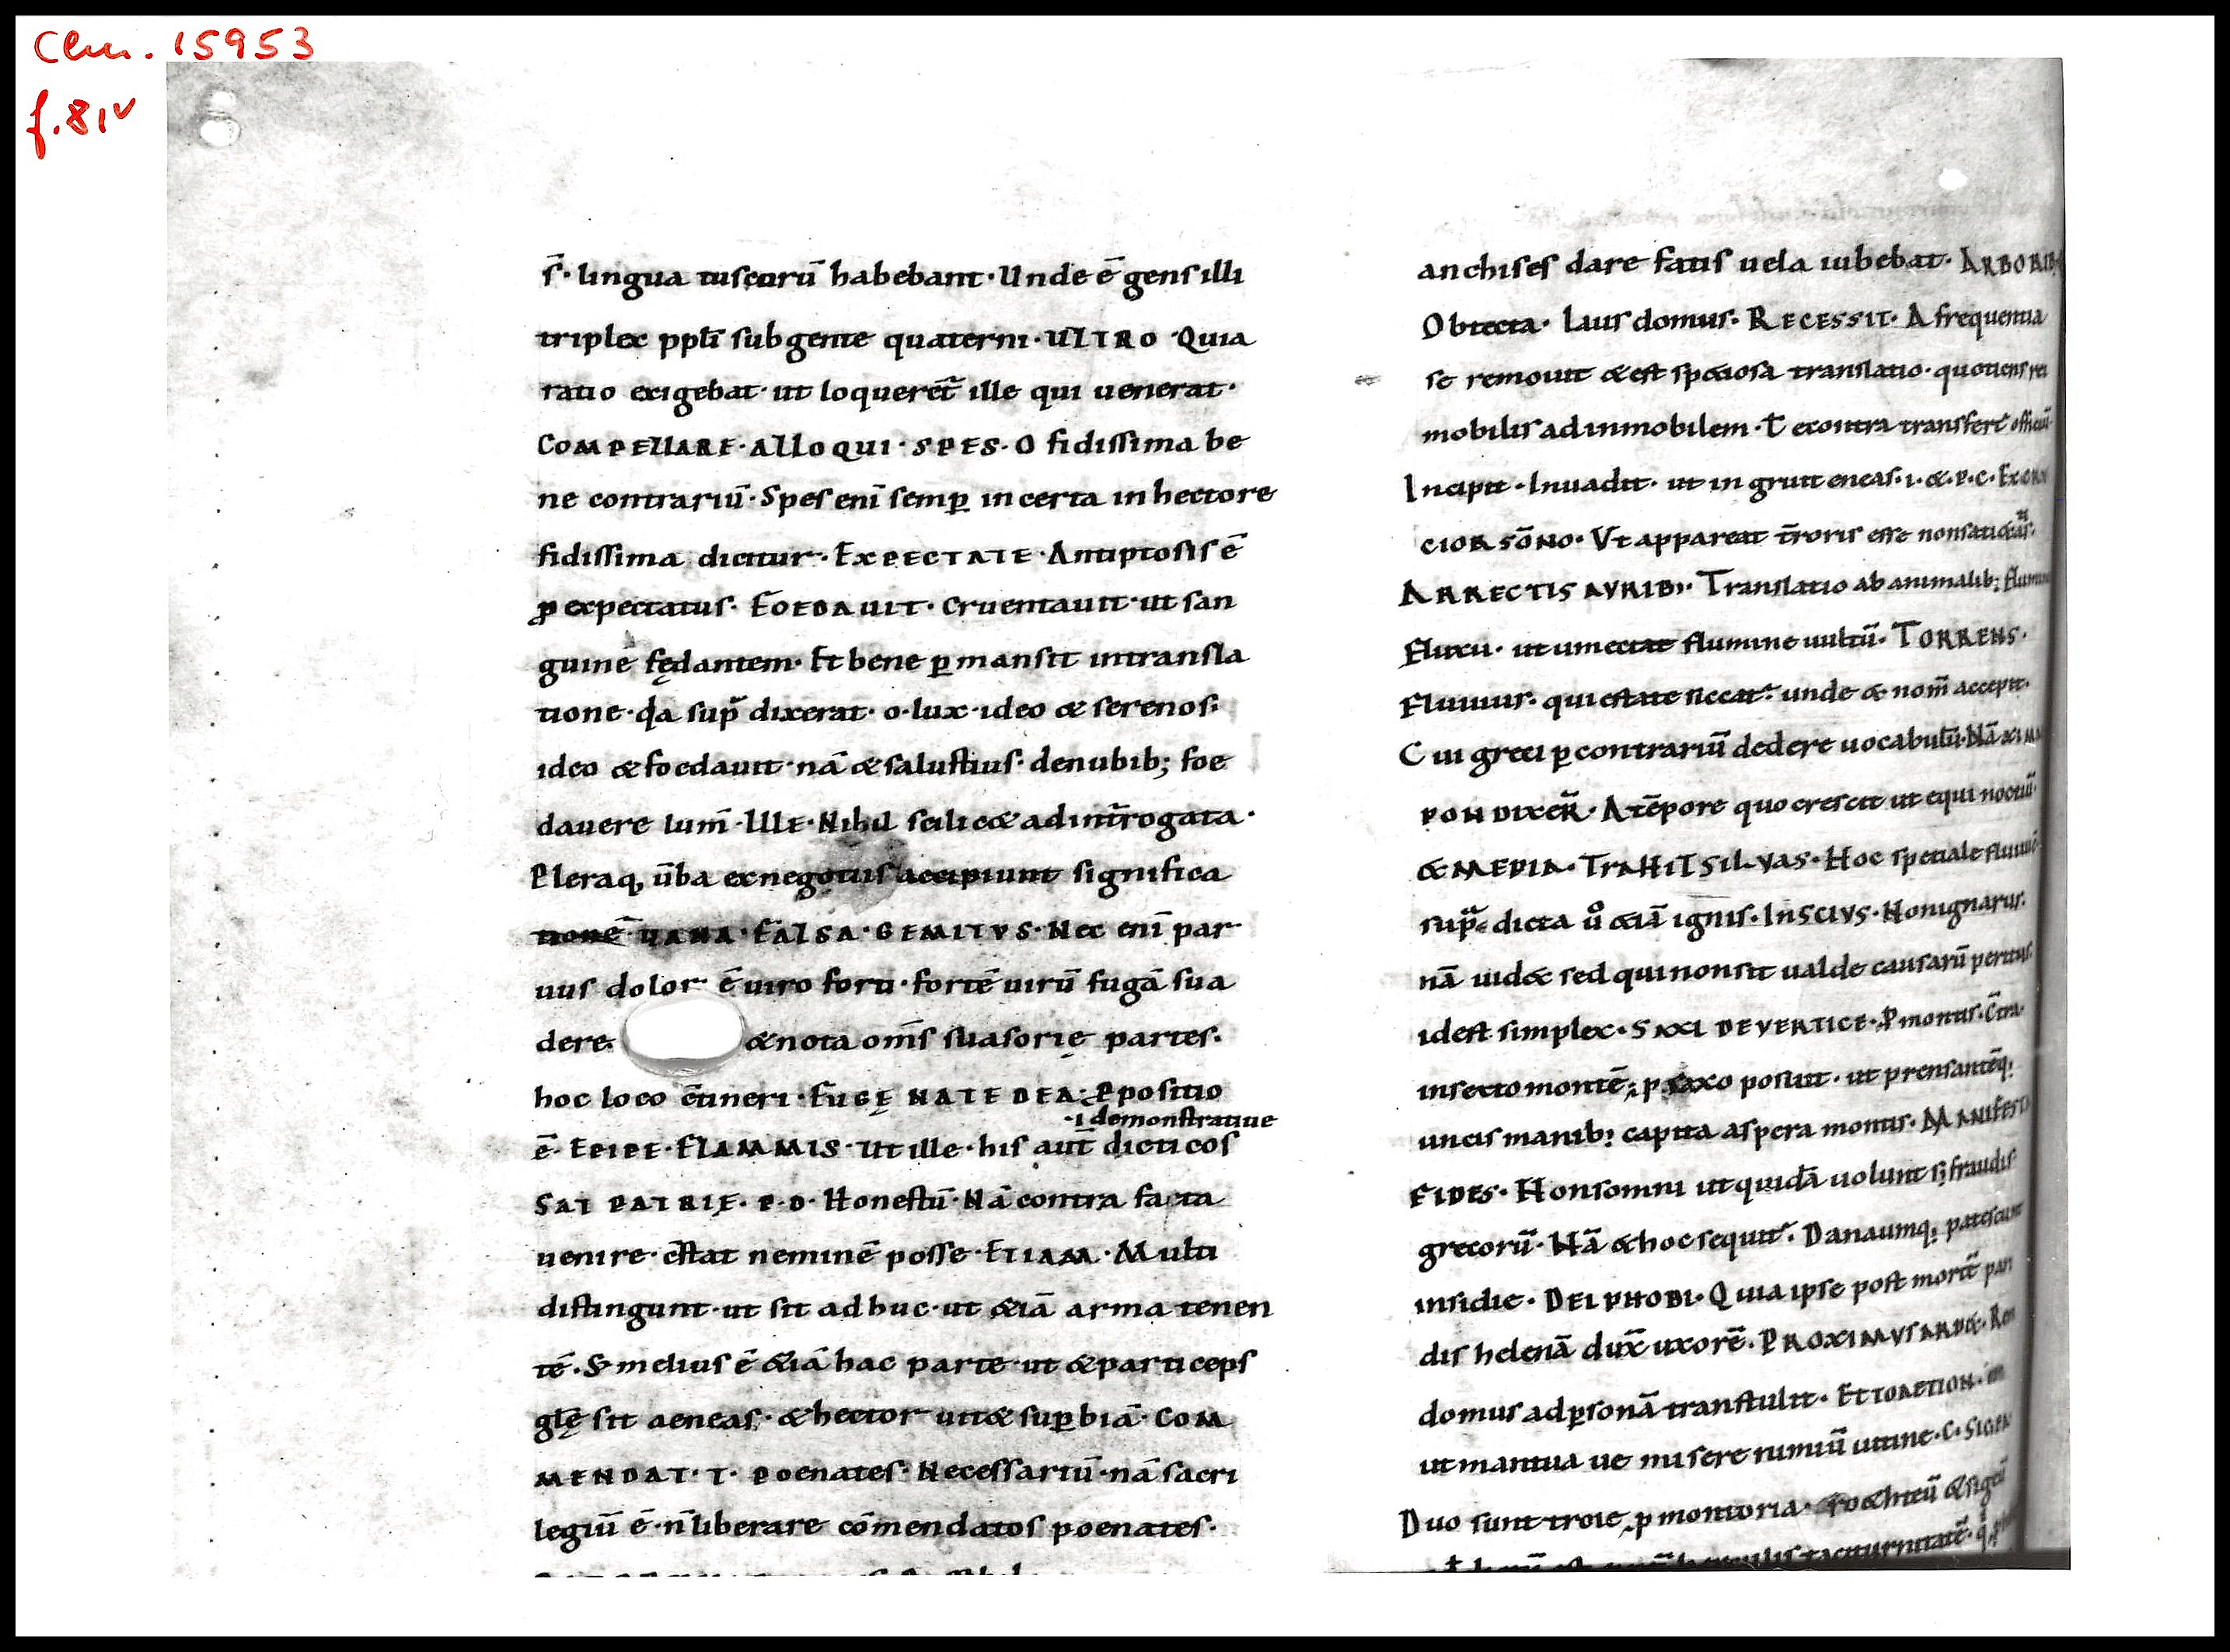 Clm. 15953
f. 81v
s̄· lingua tuscorū habebant· Unde ē gens illi
triplex ppl̄i sub gente quaterni· ULTRO· Quia
ratio exigebat· ut loqueret̄ ille qui uenerat·
COMPELLARE· ALLOQUI· SPES· O fidissima be
ne contrariū· Spes enī semꝑ incerta in hectore
fidissima dicitur· EXPECTATE· Antiptosis ē
ꝓ expectatus· FOEDAUIT· Cruentauit· ut san
guine fędantem· Et bene ꝑmansit in transla
tione· q̄a sup̄ dixerat· o· lux· ideo & serenos·
ideo & foedauit· nā & salustius· denubib; foe
dauere lum̄· ILLE· Nihil scilic& ad int̄rogata·
Pleraq, ūba ex negotiis accipiunt significa
tionē· UANA· FALSA· GEMITVS· Nec enī par
uus dolor ē uiro forti· fortē uirū fugā sua
dere· & nota om̄s suasorię partes·
hoc loco c̄tineri· FUGĘ NATE DEA· Ꝓpositio
·i· demonstratiue
ē· ERIPE· FLAMMIS· Ut ille· his aut̄ dicti cos
SAT PATRIĘ· P·D· Honestū· Nā contra facta
uenire· c̄stat neminē posse· ETIAM· Multi
distingunt· ut sit adhuc· ut &iā arma tenen
tē· S& melius ē &iā hac parte· ut & particeps
glę sit aeneas· & hector uit& suꝑbiā· COM
MENDAT· T· Poenates· Necessariū· nā sacri
legiū ē· n̄ liberare cōmendatos poenates·
anchises dare fatis uela iubebat· ARBORIB
Obtecta· Laus domus· RECESSIT· A frequentia
se remouit & est speciosa translatio· quotiens rei
mobilis ad inmobilem· t̄ econtra transfert̄ officiū
Incipit· Inuadit· ut in gruit eneas· i· &· P· C· EXCU
CIOR SŌNO· Vt appareat t̄roris esse non satietatis·
ARRECTIS AVRIB;· Translatio ab animalib; flumine
Fluxu· ut umectat flumine uultū· TORRENS·
Fluuius· qui estate siccat̄· unde & nom̄ accepit·
Cui greci ꝑ contrariū dedere uocabulū· Nā
PON DIXER̄· A tēpore quo crescit ut equi noctiū·
& MEDIA· TRAHIT SILVAS· Hoc speciale fluuii
supͣ dicta ů &iā ignis· INSCIVS· Non ignarus·
nā uid& sed qui non sit ualde causarū peritus·
id est simplex· SAXI DE VERTICE· Ꝓ montis· C̄tra
in sexto montē; ꝓ saxo posuit· ut prensantēq;
uncis manib; capita aspera montis· MANIFESTA
FIDES· Non somni ut quidā uolunt s; fraudis
grecorū· Nā & hoc sequit̄· Danaumq; patescunt
insidie· DEIPHOBI· Quia ipse post mortē pari
dis helenā dux̄ uxorē· PROXIMVS ARD&·
domus ad ꝑsonā transtulit· ET TORETION·
ut mantua ue misere nimiū uicine· C· SIGEA
Duo sunt troie ꝓmontoria· roetheū & sigeū